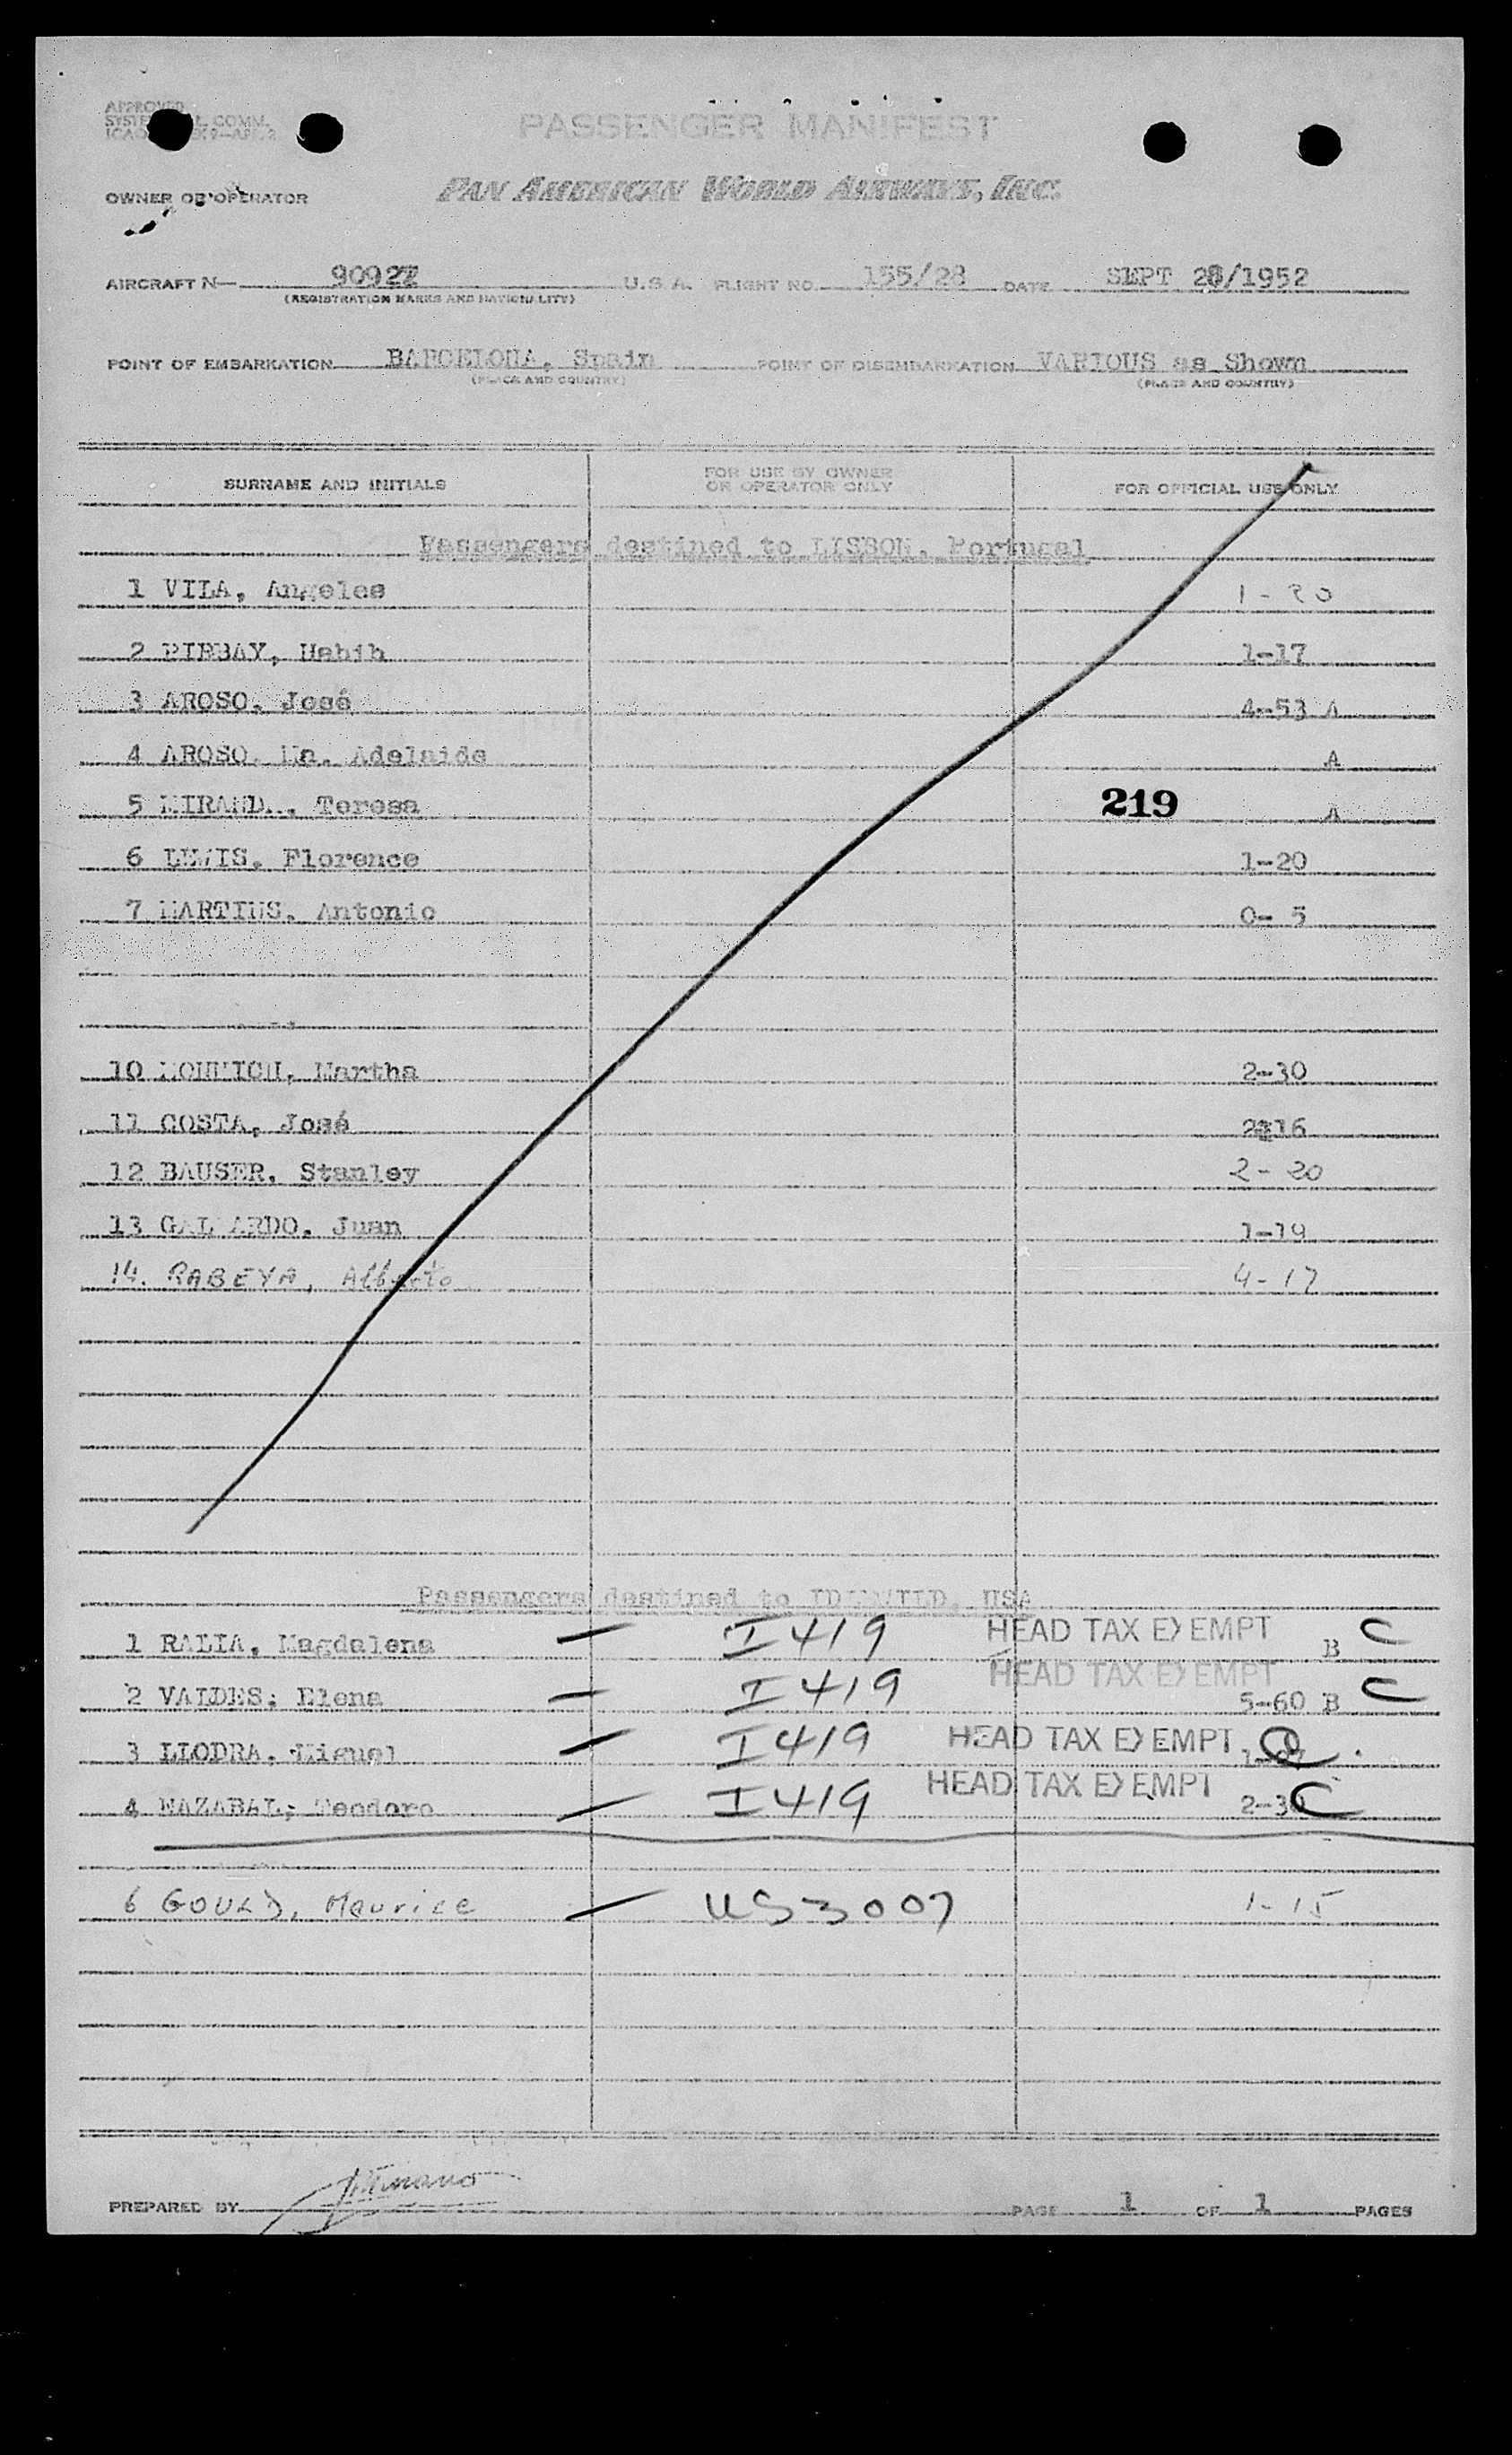 APPROVED
COMM.
PASSENGER MANIFEST
OWNER OR OPERATOR
PAN AMERICAN WORLD AIRWAYS, INC.
AIRCRAFT N— 90927 U.S.A. FLIGHT NO. 155/28 DATE SEPT 28/1952
(REGISTRATION MARKS AND NATIONALITY)
POINT OF EMBARKATION BARCELONA, Spain POINT OF DISEMBARKATION VARIOUS as Shown
(PLACE AND COUNTRY) (PLACE AND COUNTRY)
SURNAME AND INITIALS FOR USE BY OWNER OR OPERATOR ONLY FOR OFFICIAL USE ONLY
Passengers destined to LISBON, Portugal
1 VILA, Angeles 1-20
2 PIRBAY, Habib 1-17
3 AROSO, José 4-53 A
4 AROSO, Ma. Adelaide A
5 MIRANDA, Teresa 219 A
6 LEWIS, Florence 1-20
7 MARTINS, Antonio 0- 5
10 Martha 2-30
11 COSTA, José 2-16
12 BAUSER, Stanley 2-20
13 GALLARDO, Juan 1-19
14. RABEYA, Alberto 4-17
Passengers destined to IDLEWILD, USA
1 RALIA, Magdalena — I 419 HEAD TAX EXEMPT B C
2 VALDES; Elena — I 419 HEAD TAX EXEMPT 5-60 B C
3 LLODRA, Miguel — I 419 HEAD TAX EXEMPT
4 MAZABAL; Teodoro — I 419 HEAD TAX EXEMPT 2-30 C
6 GOULD, Maurice — US 3007 1-15
PREPARED BY PAGE 1 OF 1 PAGES